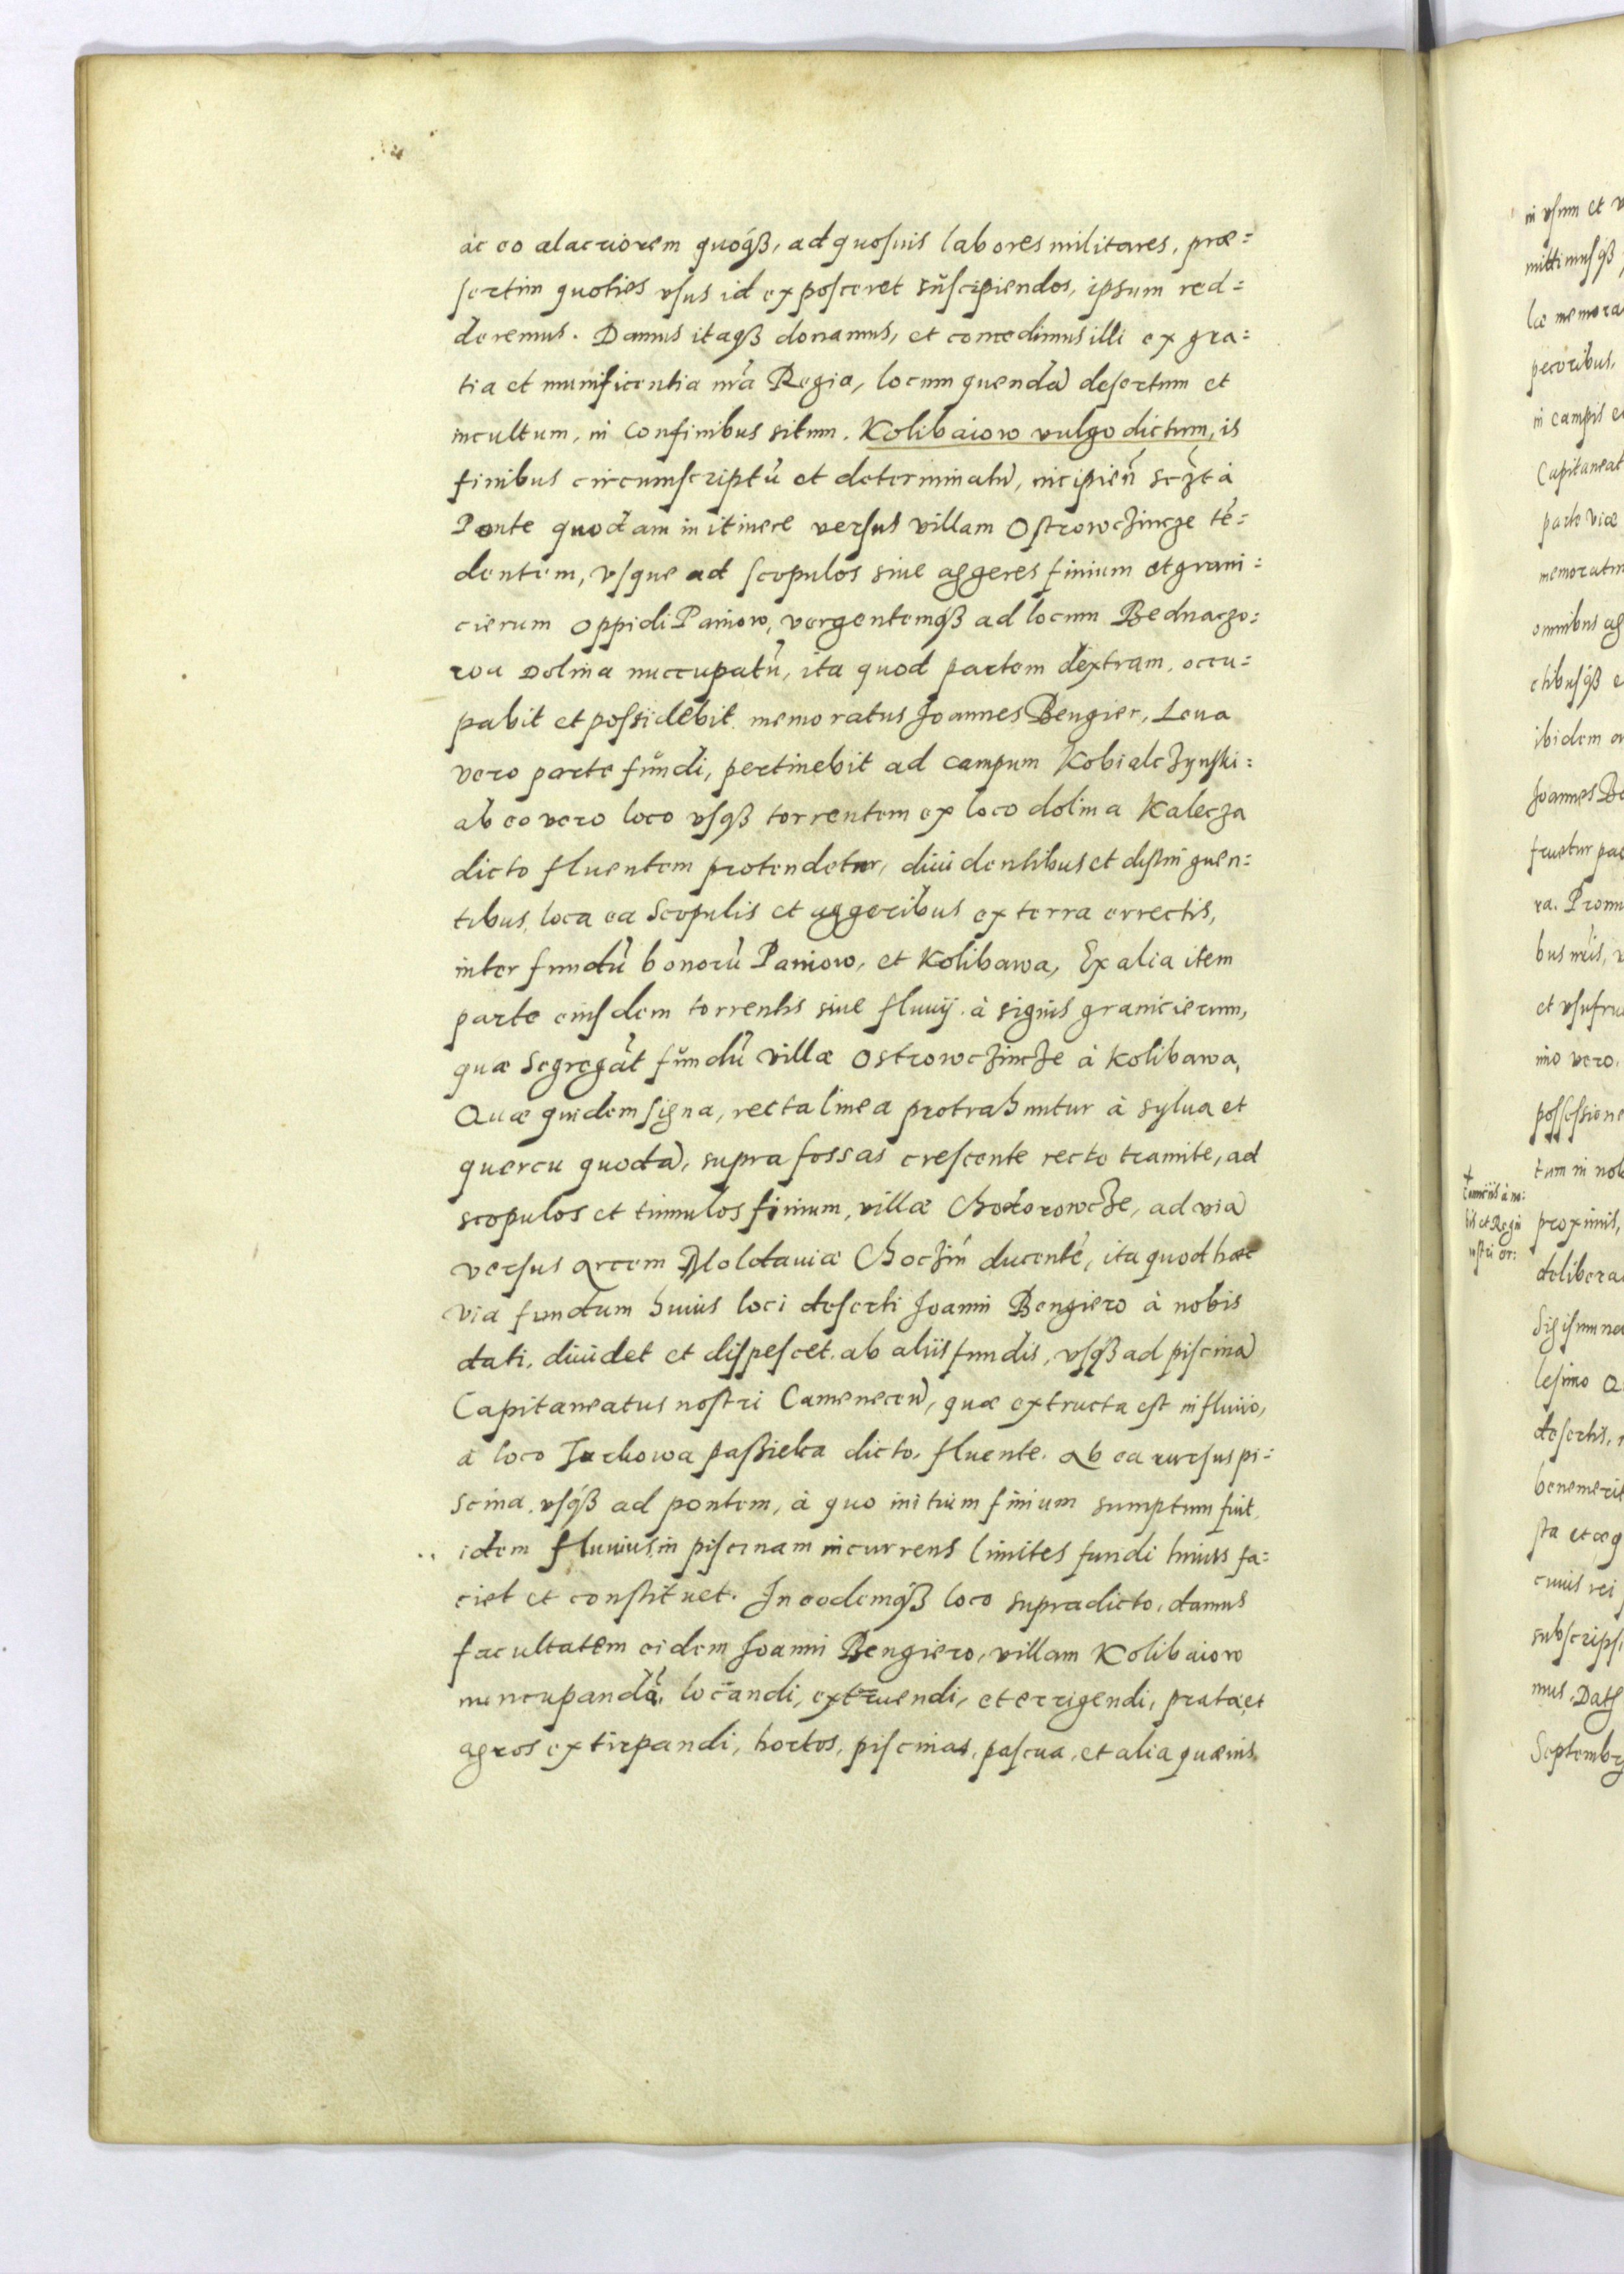 ac eo alacriorem quoqȝ, ad quosuis labores militares, præ=
sertim quoties vsus id exposceret suscipiendos, ipsum red=
deremus. Damus itaqȝ donamus, et concedimus illi ex gra=
tia et munificentia nr̃a Regia, locum quendã desertum et
incultum, in confinibus situm. Kolibaiow vulgo dictum, is
finibus circumscriptũ et determinatũ, incipień sczt à
Ponte quodam in itinere versus villam Ostrowczincze tẽ=
dentem, vsque ad scopulos siue aggeres finium et grani=
cierum oppidi Paniow, vergentemqȝ ad locum Bednarzo=
wa Dolina nuccupatũ, ita quod partem dextram, occu=
pabit et possidebit memoratus Joannes Bengier, Leua
vero parte fundi, pertinebit ad campum Kobialczynski=
ab eo vero loco vsqȝ torrentem ex loco dolina Kalecza
dicto fluentem protendetur, diuidentibus et distinguen=
tibus loca ea Scopulis et aggeribus ex terra errectis,
inter fundũ bonorũ Paniow, et Kolibawa, Ex alia item
parte eiusdem torrentis siue fluuij à signis granicierum,
quæ Segregãt fundũ villæ Ostrowczincze à Kolibawa,
Quæ quidem signa, recta linea protrahuntur à sylua et
quercu quodã, supra fossas crescente recto tramite, ad
scopulos et tumulos finium, villæ Chodorowcze, ad viã
versus Arcem Moldauiæ Choczim ducentẽ, ita quod hæc
via fundum huius loci deserti Joanni Bengiero à nobis
dati, diuidet et dispescet ab aliis fundis, vsqȝ ad piscinã
Capitaneatus nostri Camenecen̄, quæ extructa est in fluuio,
à loco Jarkowa passieka dicto, fluente. Ab ea rursus pi=
scina, vsqȝ ad pontem, à quo initium finium sumptum fuit,
idem fluuius, in piscinam incurrens limites fundi huius fa=
ciet et constituet. In eodemqȝ loco supradicto, damus
facultatem eidem Joanni Bengiero, villam Kolibaiow
nuncupandã, locandi, extruendi, et errigendi, prata, et
agros extirpandi, hortos, piscinas, pascua, et alia quæuis
in vsum et
mittimusqȝ
læ memora
pecoribus,
in campis
Capitaneat
parte viæ
memoratu
omnibus
ctibusqȝ
ibidem
Joannes Be
fruetur
ra. Promi
bus nr̃is,
et vsufru
imo vero.
possessione
tum in nob
+
à no:
bis et Regni
nostri or:
proximis,
delibera
Sigismun
lesimo
desertis,
benemerit
sta et æq
cuius rei
subscrips
mus. Dat
Septembr